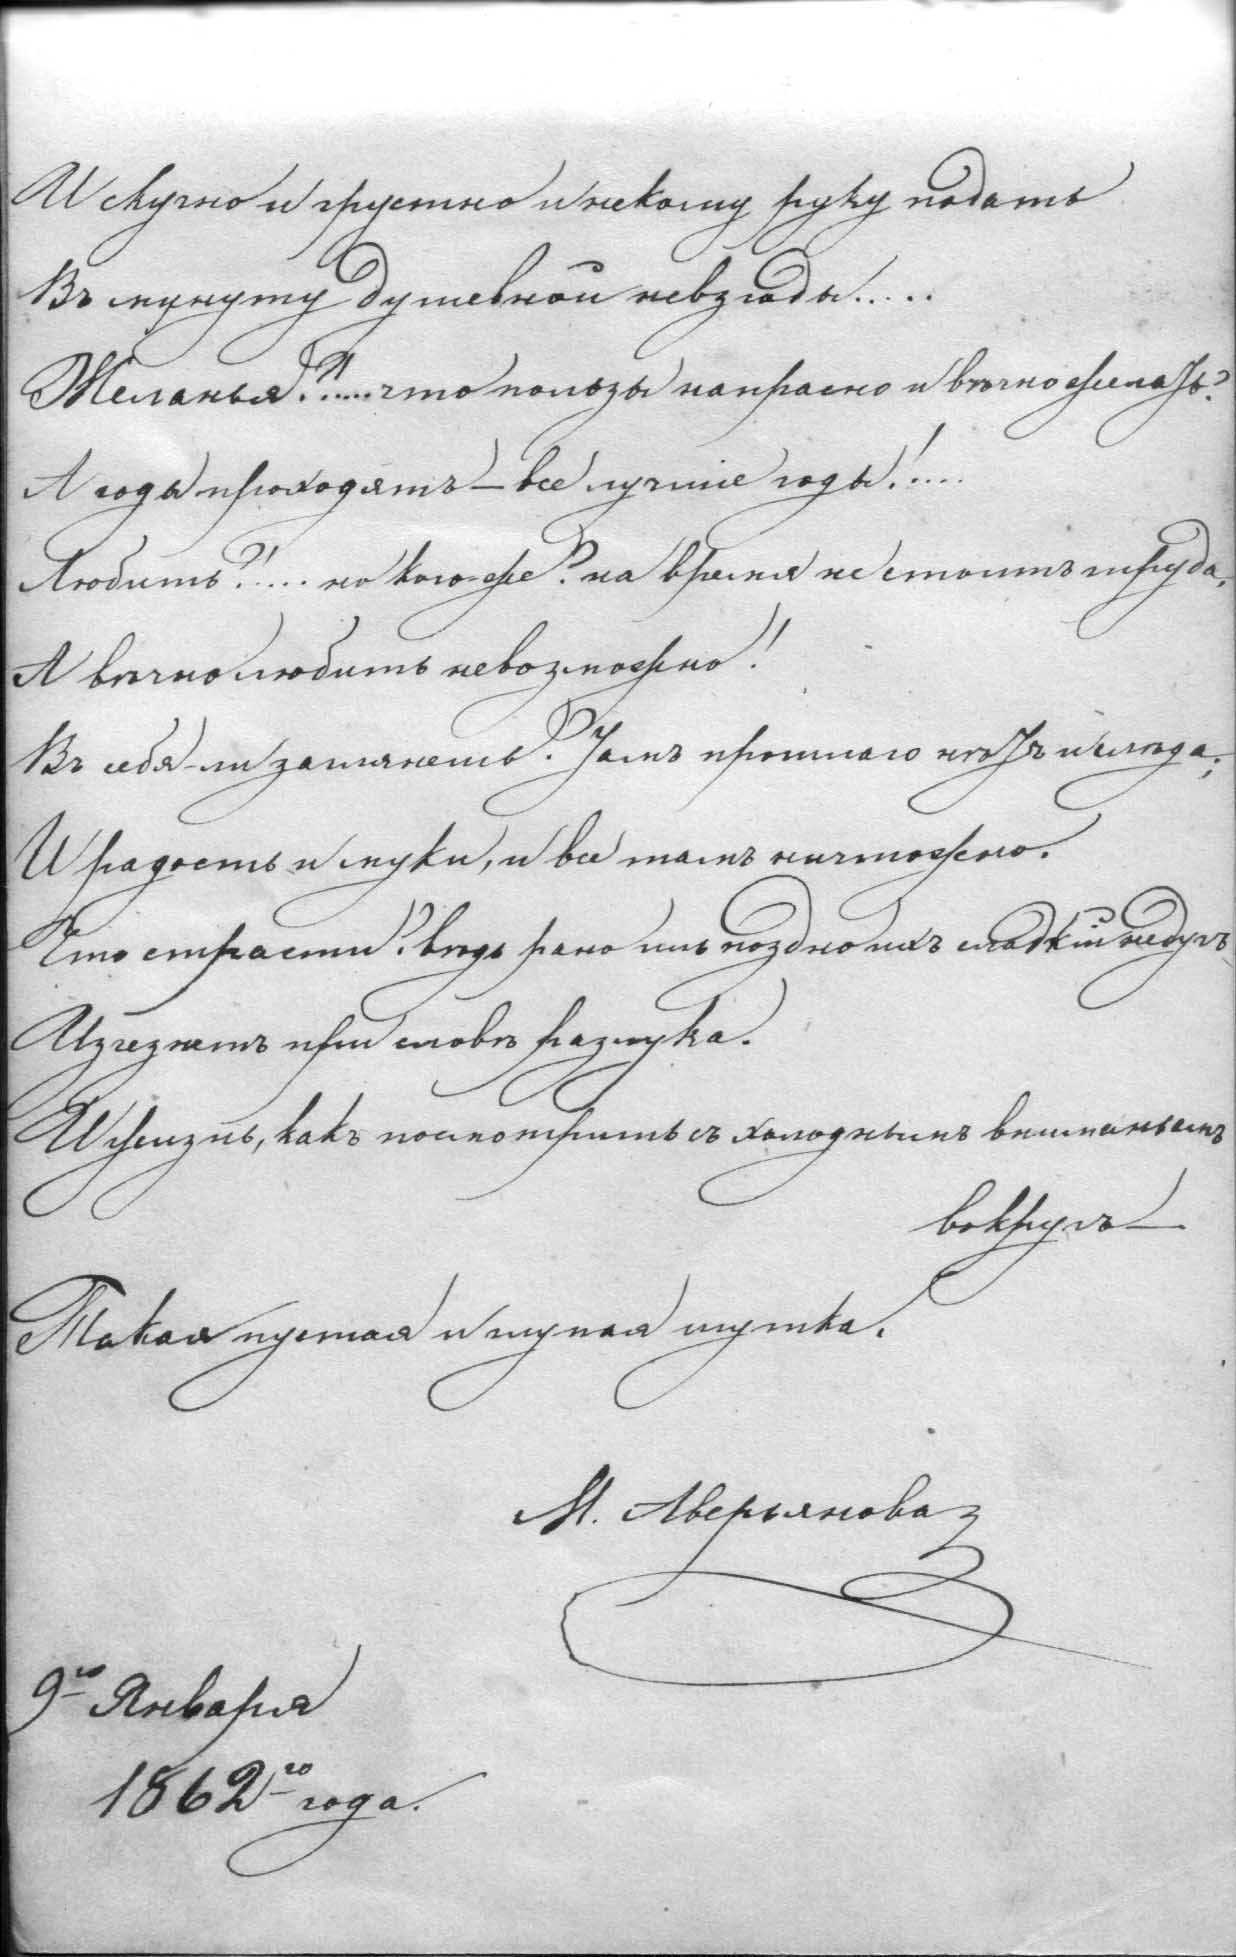 И скучно и грустно и некому руку подать
Въ минуту душевной невзгоды.....
Желанья?!.....что пользы напрасно и вѣчно желать?
А годы проходятъ – все лучшіе годы!....
Любить?!.... но кого-же? на время не стоитъ труда,
А вѣчно любить невозможно!
Въ себя-ли заглянешь? Тамъ прошлаго нѣтъ и слѣда;
И радость и муки, и все тамъ ничтожно.
Что страсти? вѣдь рано иль поздно ихъ сладкій недугъ
Изчезнетъ при словѣ разлука.
И жизнь, какъ посмотришь съ холоднымъ вниманьемъ
вокругъ –
Такая пустая и глупая шутка.
М. Аверьянова
9го Января
1862го года.